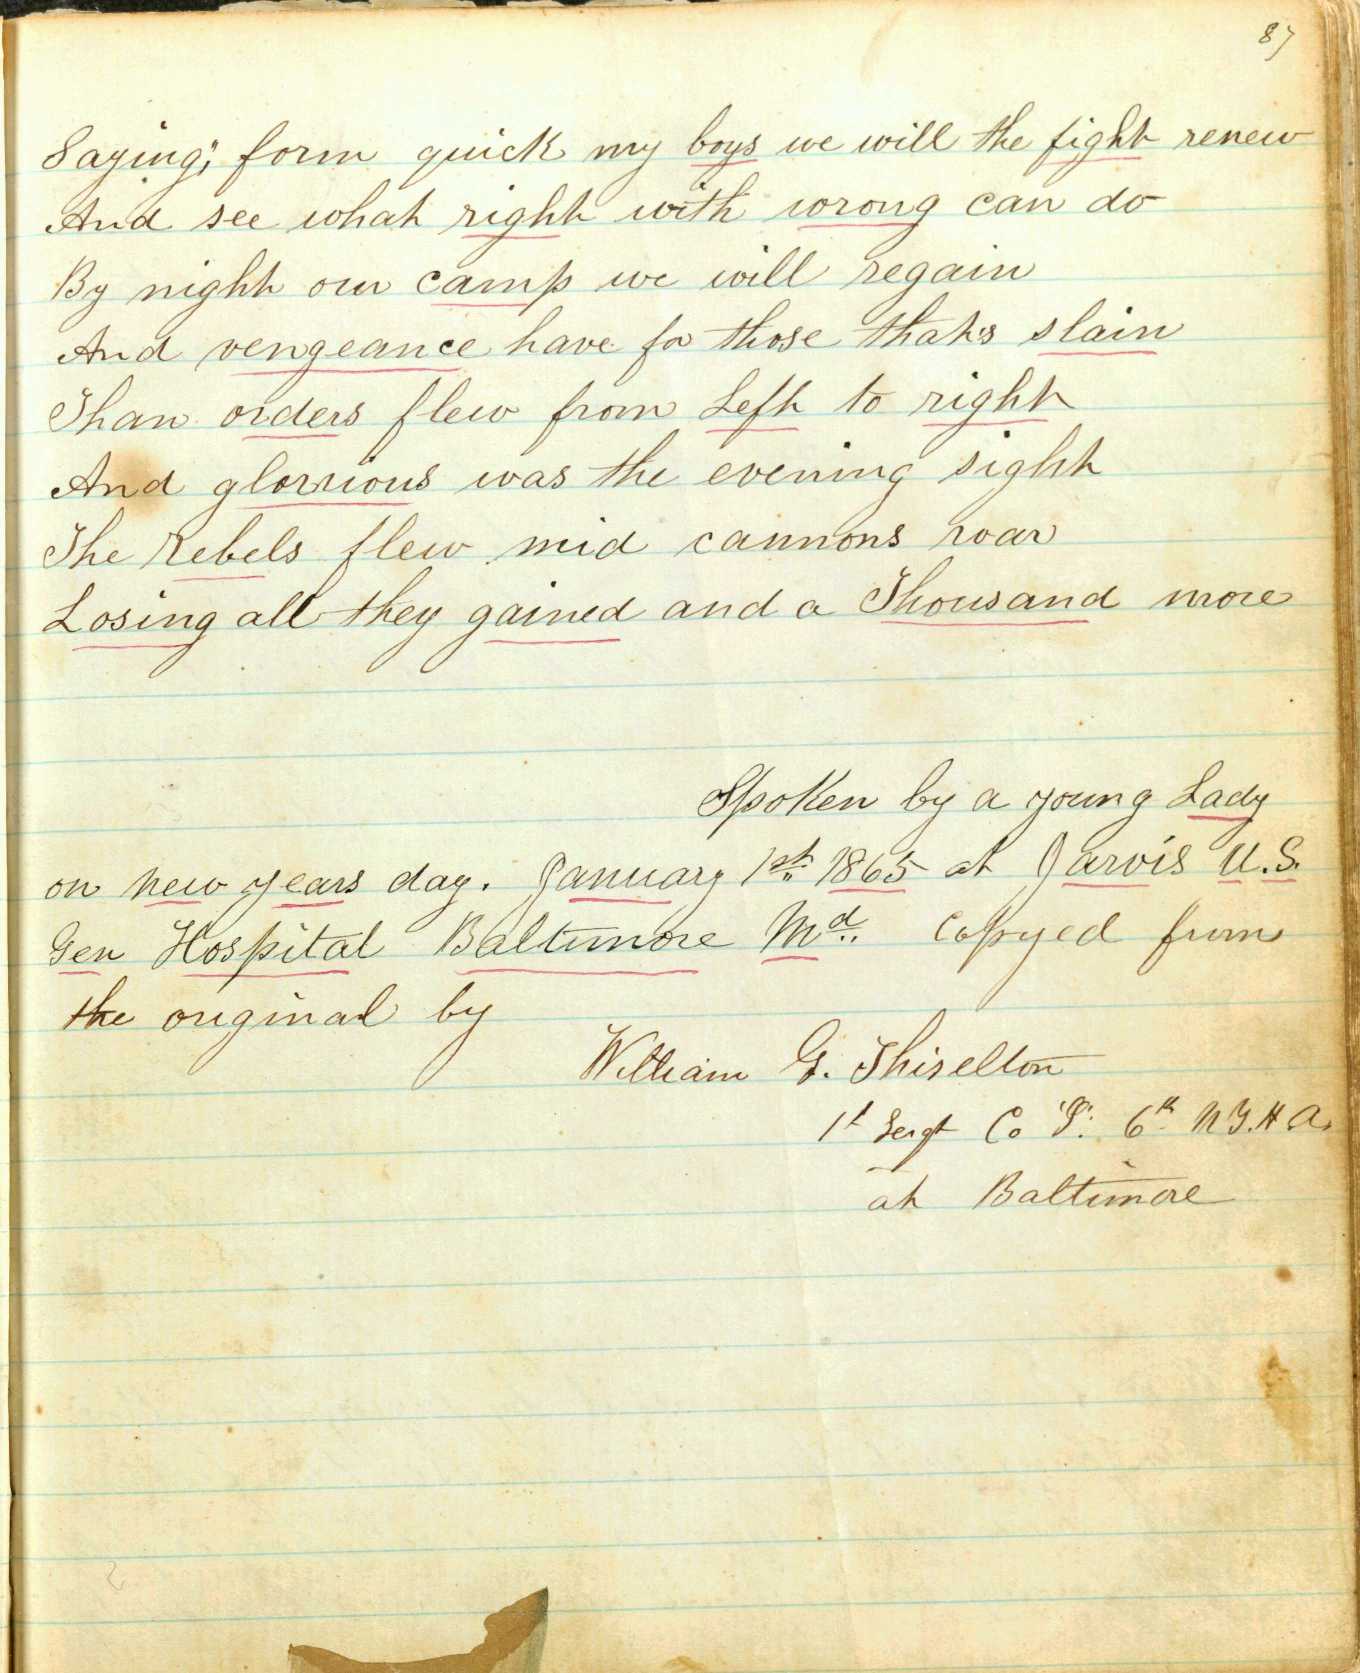 87
Saying; form quick my boys we will the fight renew
And see what right with wrong can do
By night our camp we will regain
And vengeance have for those that's slain
Than orders flew from Left to right
And glorrious was the evening sight
The Rebels flew mid cannons roar
Losing all they gained and a Thousand more
Spoken by a young Lady
on new years day. January 1st 1865 at Jarvis U.S.
Gen Hospital Baltimore Md. Copyed from
the original by
William G. Thiselton
1t Sergt Co 6th N Y. H A.
at Baltimore